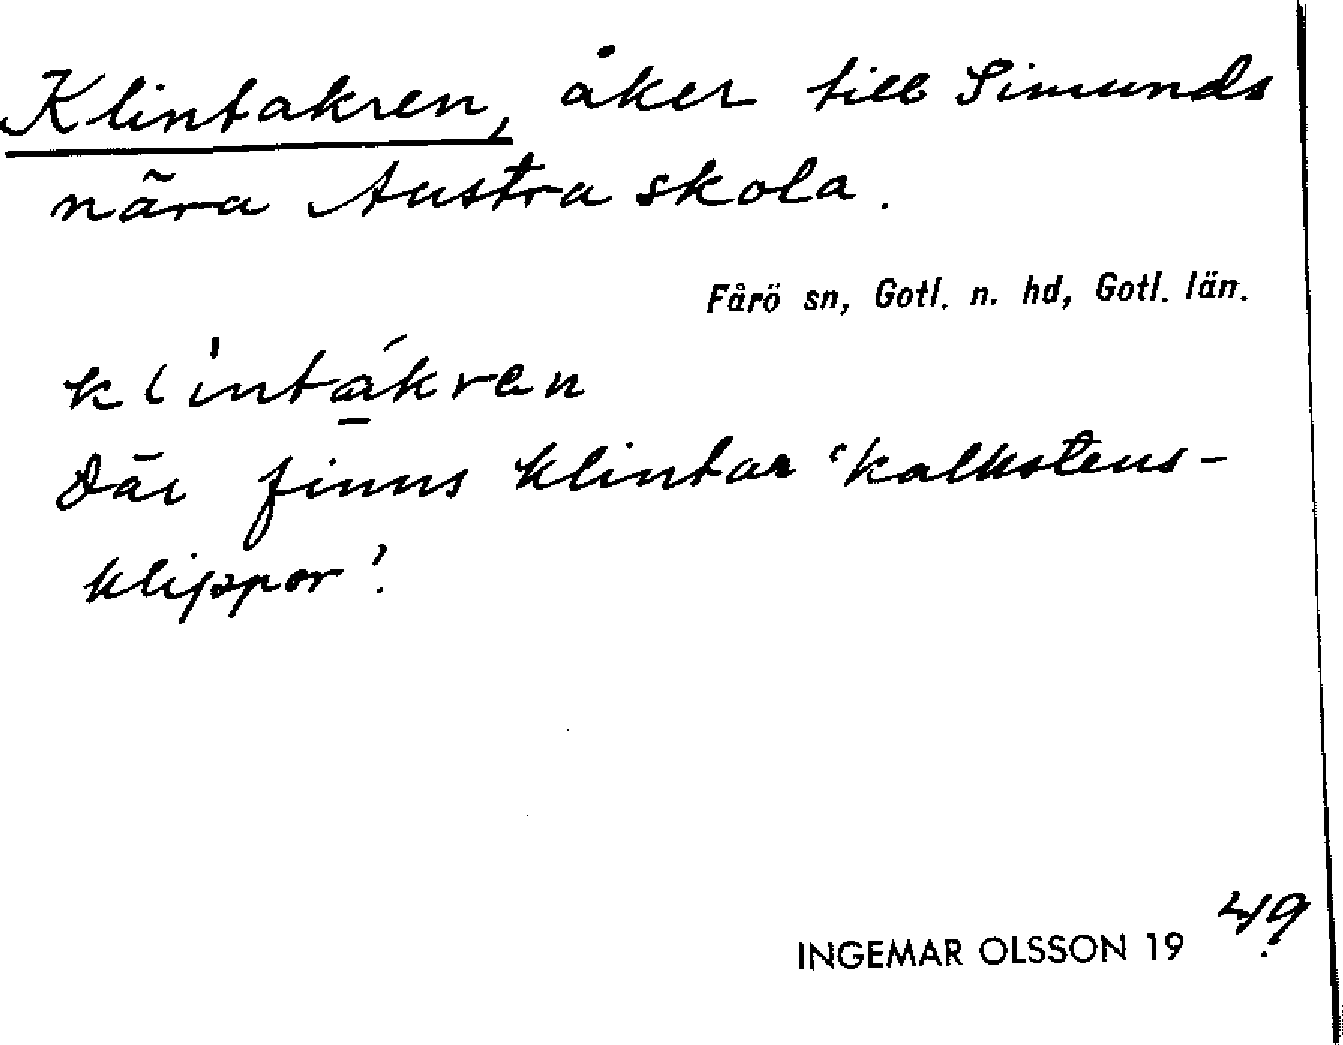 Klintakren, åker till Simunds
nära Austra skola.
Fårö sn, Gotl. n. hd, Gotl. län.
klintákren
Där finns klintar 'kalkstens-
klippor'.
INGEMAR OLSSON 1949.